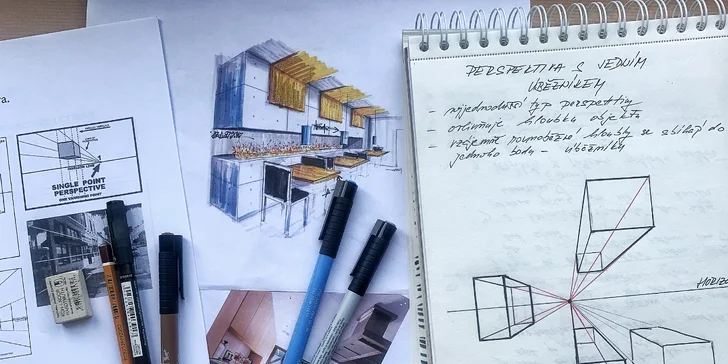 ra.
SINGLE POINT
PERSPECTIVE
ONE VANISHING POINT
PERSPEKTIVA S JEDNÍM
ÚBĚŽNÍKEM
- nejjednodušší typ perspektivy
- ovlivňuje hloubku objektu
- vzájemně rovnoběžné hloubky se sbíhají do
jednoho bodu - úběžníku
HORIZO